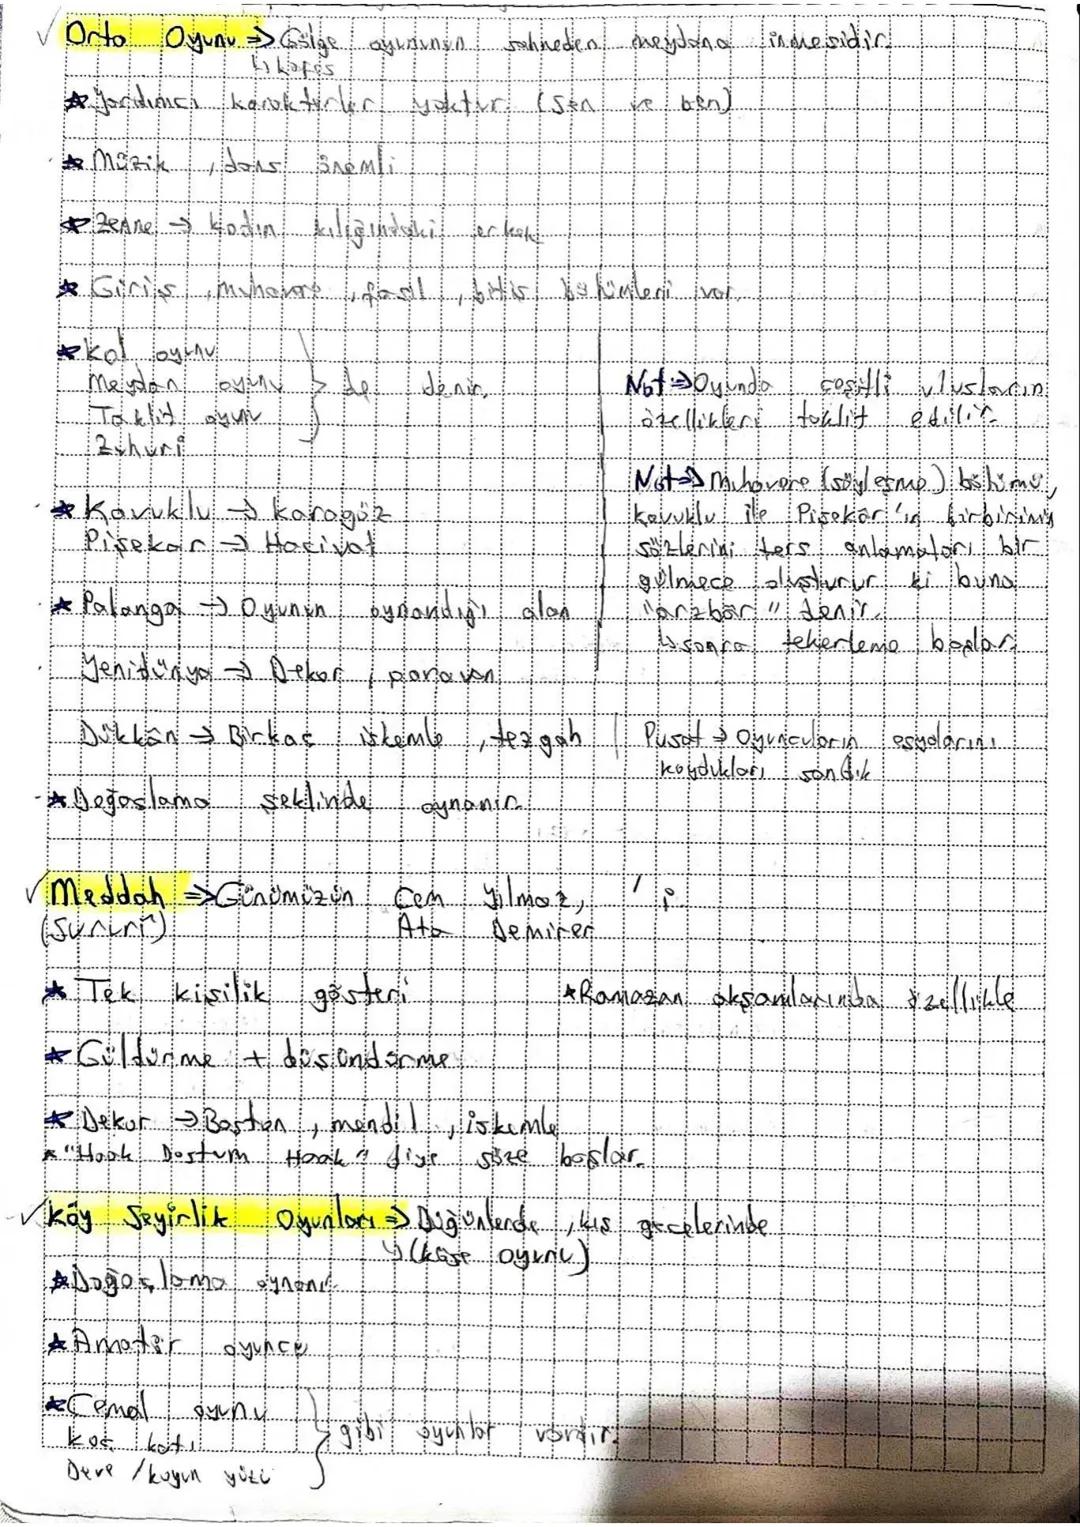 Orta Oyunu => Gölge oyununun sahneden meydana inmesidir.
↳ kafes
* Yardımcı karakterler yoktur. (Sen ve ben)
* Müzik, dans önemli
* Zenne → kadın kılığındaki erkek
* Giriş, muhavere, fasıl, bitiş bölümleri var.
* Kol oyunu
Meydan oyunu } de denir.
Taklit oyunu
Zuhuri
* Kavuklu → karagöz
Pişekar → Hacivat
* Palanga → Oyunun oynandığı alan
Yenidünya → Dekor, paravan
Dükkân → Birkaç iskemle, tezgah
* Doğaslama şeklinde oynanır.
Not => Oyunda çeşitli ulusların
özellikleri taklit edilir.
Not => Muhavere (söyleşme) bölümü,
kavuklu ile Pişekâr'ın birbirinin
sözlerini ters anlamaları bir
gülmece oluşturur ki buna
"arzbâr" denir.
↳ sonra tekerleme başlar.
Pusat → Oyuncuların eşyalarını
koydukları sandık
Meddah => Günümüzün Cem Yılmaz, 'i
(Sururî) Ata Demirer
* Tek kişilik gösteri
* Ramazan akşamlarında özellikle
* Güldürme + düşündürme
* Dekor → Baston, mendil, iskemle
* "Haak Dostum Haak" diye söze başlar.
Köy Seyirlik Oyunları => Düğünlerde, kış gecelerinde
↳ (köse oyunu)
* Doğaçlama oynanır
* Amatör oyuncu
* Cemal oyunu
Koç katı } gibi oyunlar vardır.
Deve / koyun yüzü